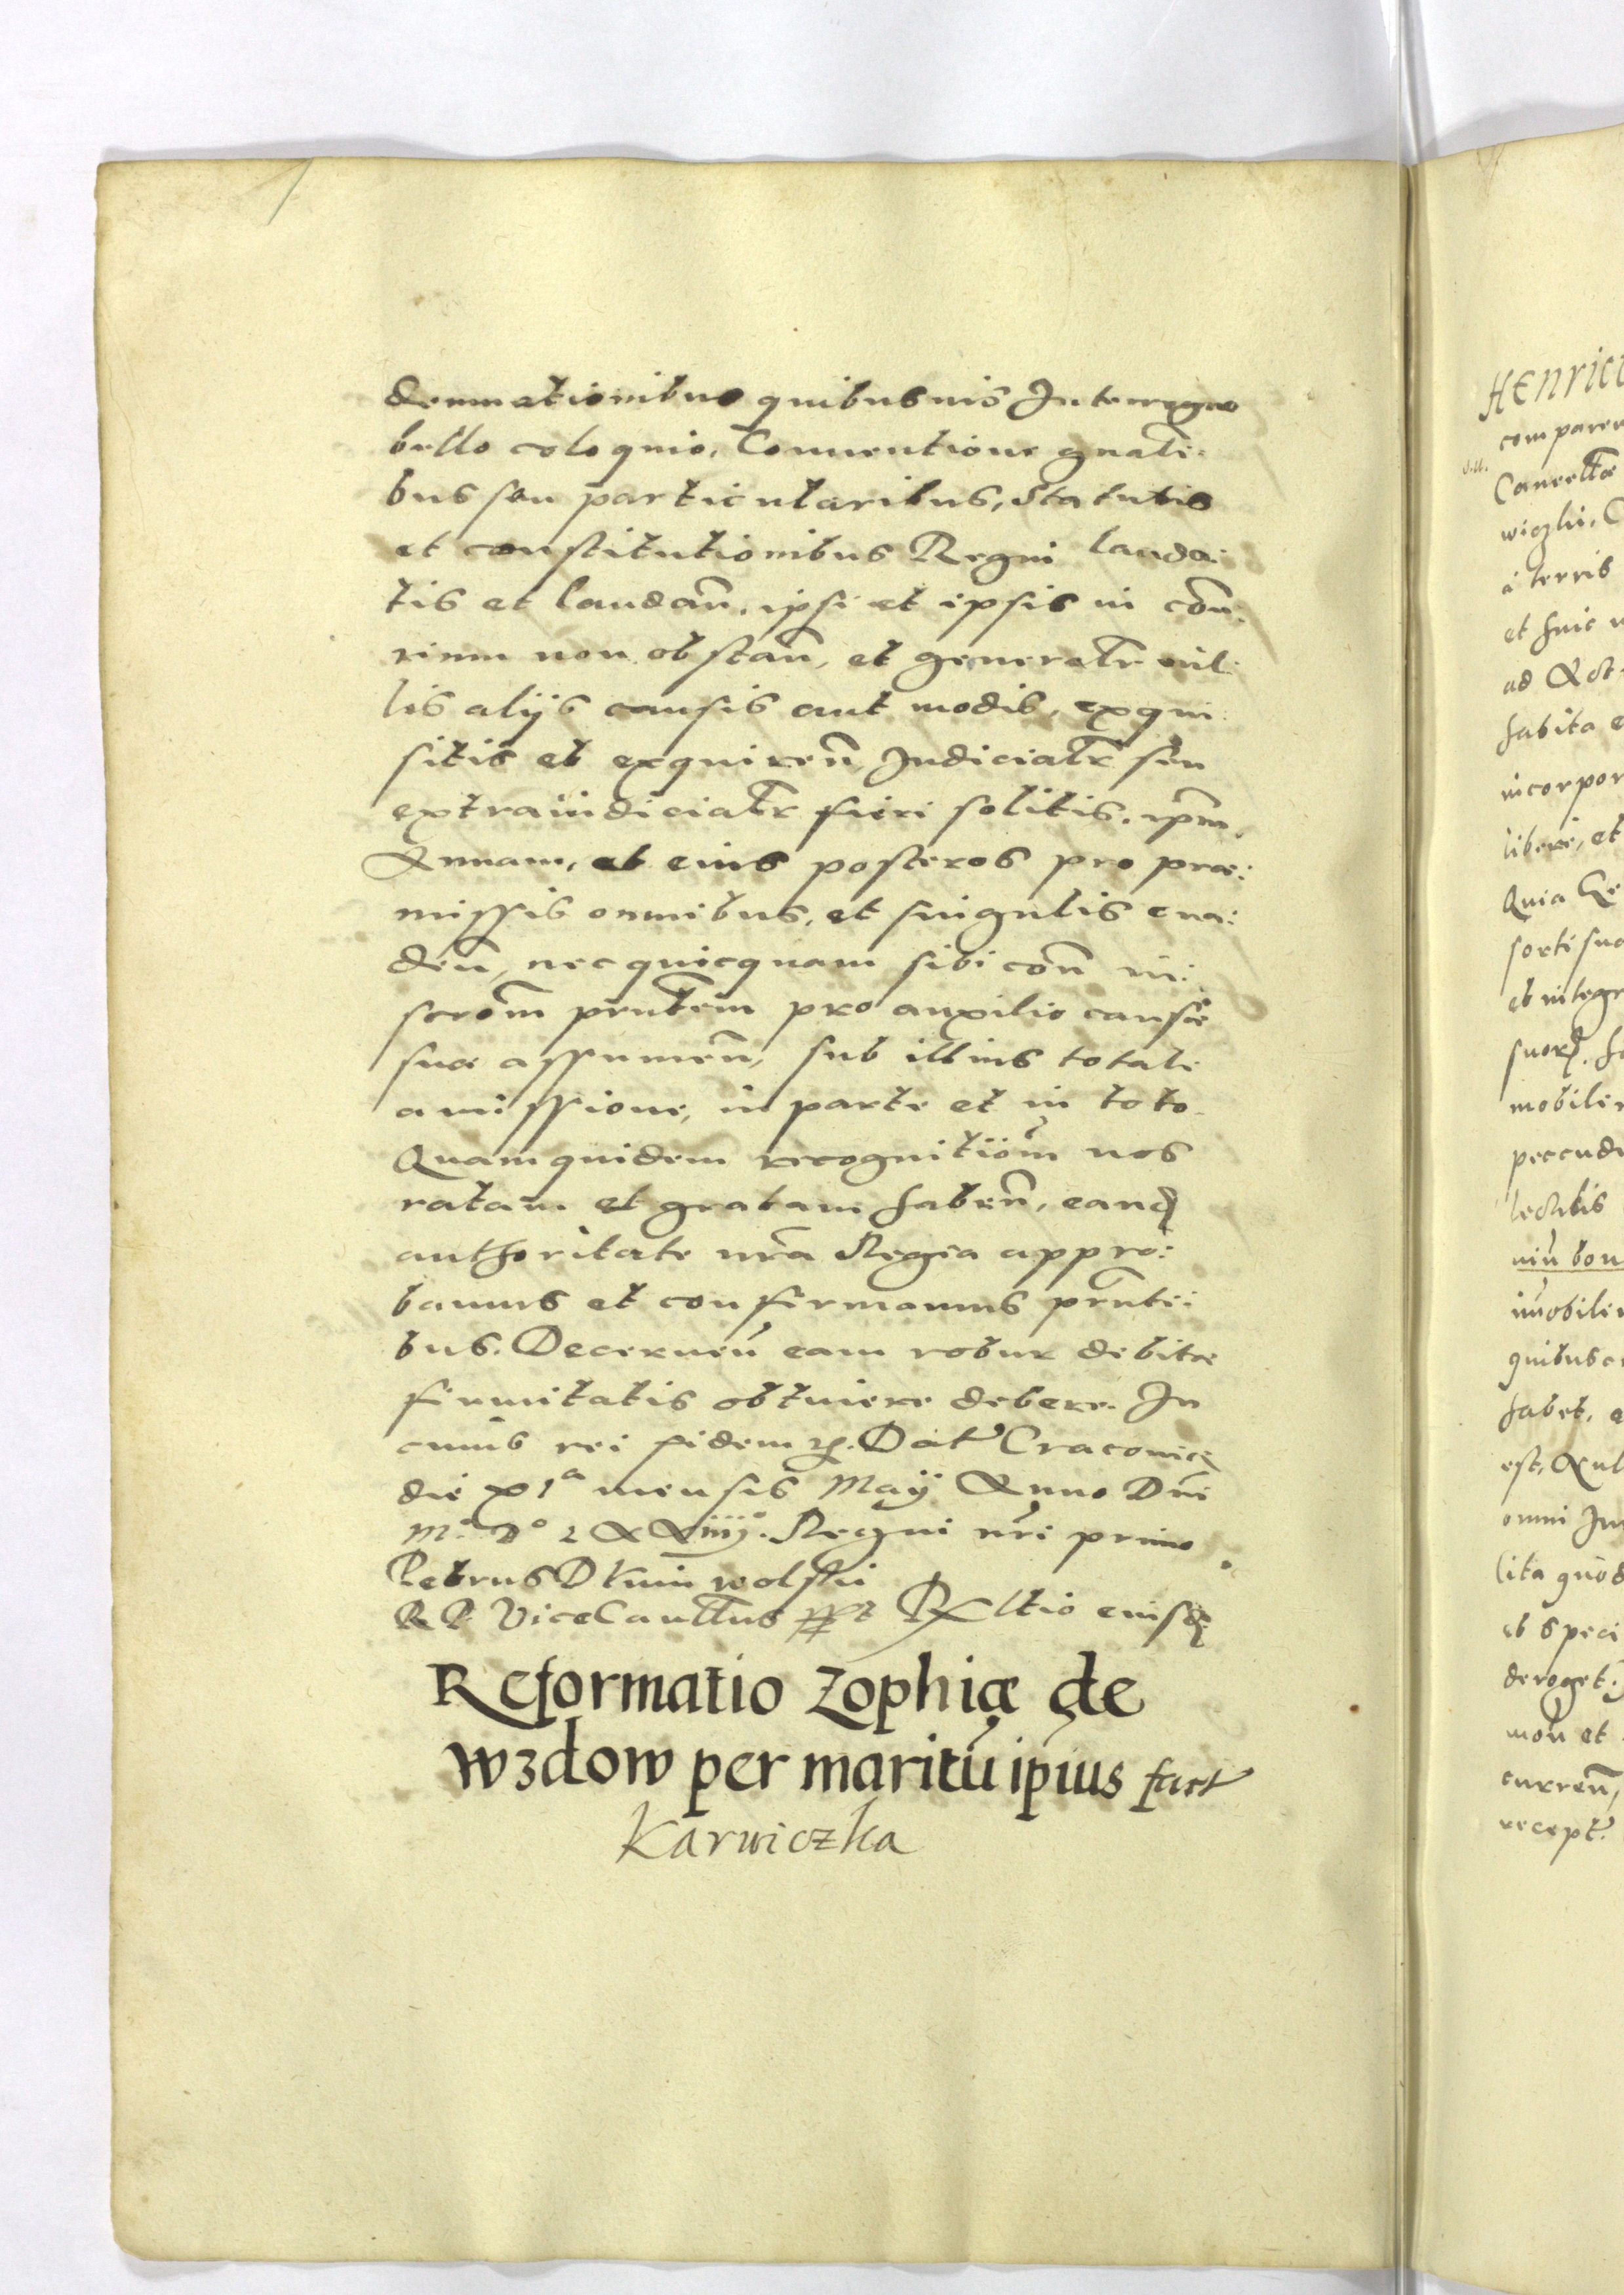 demnationibus quibusuis Interregno
bello coloquio, Conuentione gnali:
bus seu particularibus, Statutis
et constitutionibus Regni lauda:
tis et laudañ, ipsi et ipsis in con:
rium non obstañ, et generalr nul:
lis alijs causis aut modis, exqui:
sitis et exquireñ Iudicialr seu
extraiudicialr fieri solitis, ipm
Annam, et eius posteros pro præ:
missis omnibus, et singulis eua:
deñ, nec quicquam sibi con in:
scrom pnterm pro auxilio causæ
suæ assumeñ, sub illius totali
amissione, in parte et in toto.
Quam quidem recognitiom nos
ratam et gratam habeñ, eand
authoritate nra Regia appro:
bamus et confirmamus pnti:
bus. Decerneñ eam robur debitæ
firmitatis obtinere debere. In
cuius rei fidem Dat Cracouiæ
die XIa mensis Maij Anno Dni
Mo Do LXXiiijo. Regni nri primo
Petrus Dunin wolski
R P ViceCanllrus sspt Rltio eiusd
Reformatio Zophiæ de
wzdow per maritū ipius fact
Karwiczka
HEnric
compare
Cancellæ
wiczki, C
à terris
et huic
ad Act
habita e
incorpor
libere, et
Quia Ge
sorti sua
et integr
suor. ha
mobile
peccud
lectilis
niū bon
imobile
quibusc
habet, e
est, Aul
omni Iu
lita quod
et speci
deroget
moñ et
curreñ,
recept